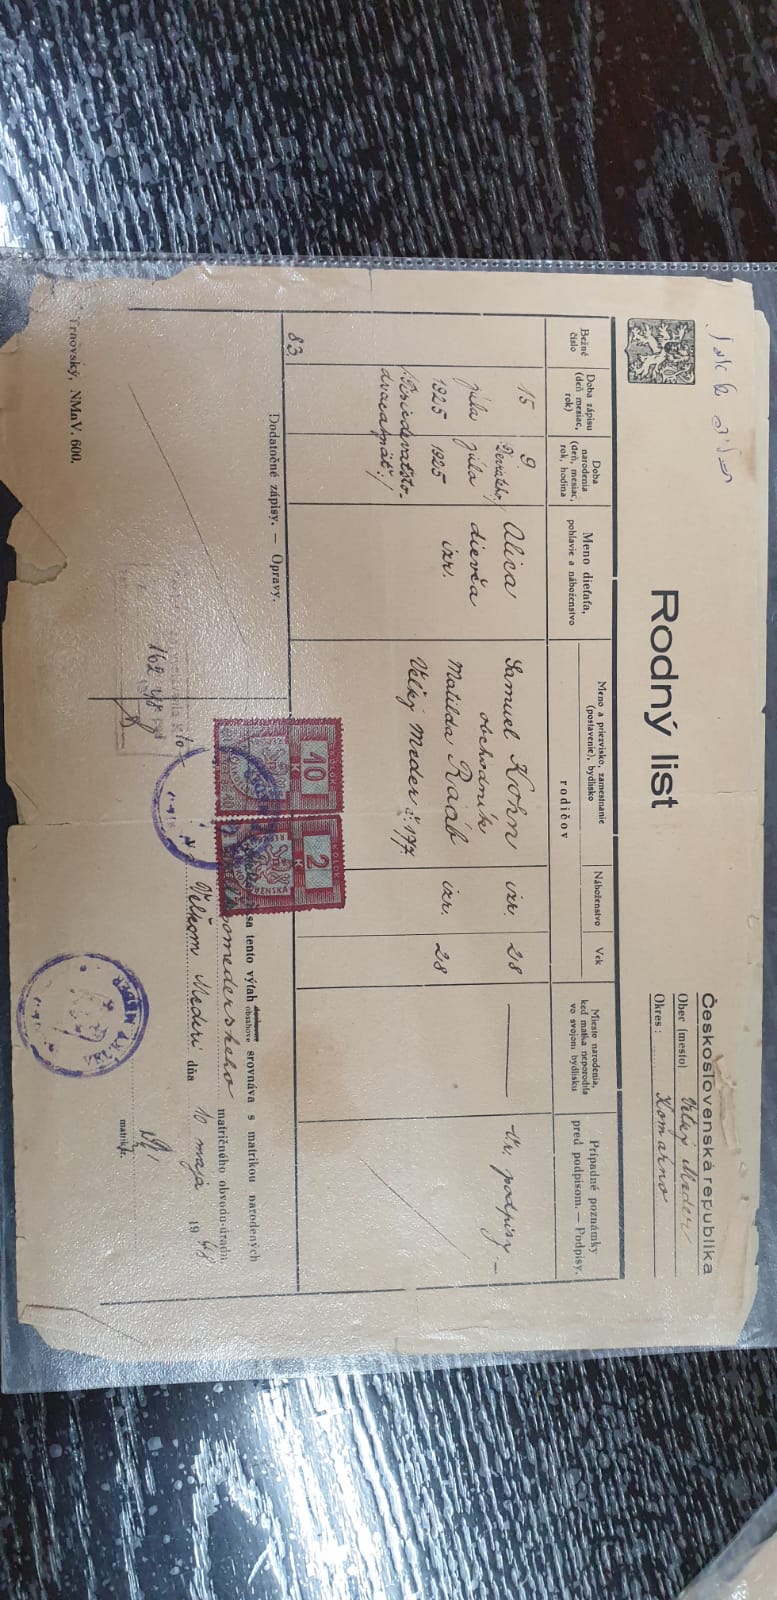 Československá republika
Obec (mesto) Velký Meder
Okres: Komarno
Rodný list
Bežné číslo
Doba zápisu (deň mesiac, rok)
Doba narodenia (deň, mesiac, rok, hodina
Meno dieťaťa, pohlavie a náboženstvo
Meno a priezvisko, zamestnanie (postavenie), bydlisko
Náboženstvo
Vek
rodičov
Miesto narodenia, keď matka neporodila vo svojom bydlisku
Prípadné poznámky pred podpisom. — Podpisy.
83.
15
júla
1925
9
júla
1925
Alica
dievča
izr.
Samuel Kohn izr. 28
obchodník
Matilda Raab izr. 28
Velký Meder č. 177.
Vr. podpisy.
Dodatočné zápisy. — Opravy.
10
K
KOLOK
2
K
KOLOK
sa tento výťah obsahove srovnáva s matrikou narodených
omederskeho matričného obvodu-úradu
Velkom Mederi dňa 10 maja 19 48
matrikár.
162 48
Trnovský, NMnV. 600.